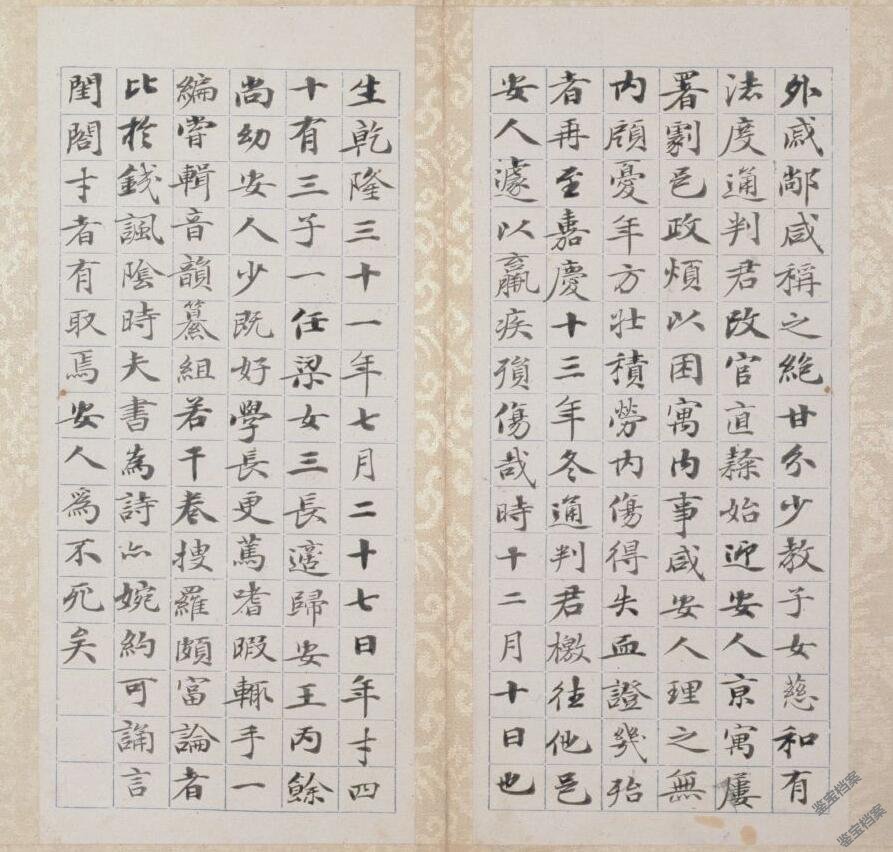 外戚鄰咸稱之絶甘分少教子女慈和有
法度通判君改官直隸始迎安人京寓屢
署劇邑政煩以困寓内事咸安人理之無
内顧憂年方壯積勞内傷得失血證幾殆
者再至嘉慶十三年冬通判君檄往他邑
安人遽以羸疾殞傷哉時十二月十日也
生乾隆三十一年七月二十七日年才四
十有三子一任梁女三長適歸安王丙餘
尚幼安人少既好學長更篤嗜暇輒手一
編嘗輯音韻纂組若干卷搜羅頗富論者
比於錢諷陰時夫書為詩亦婉約可誦言
閨閤才者有取焉安人爲不死矣
鉴宝档案
鉴宝档案